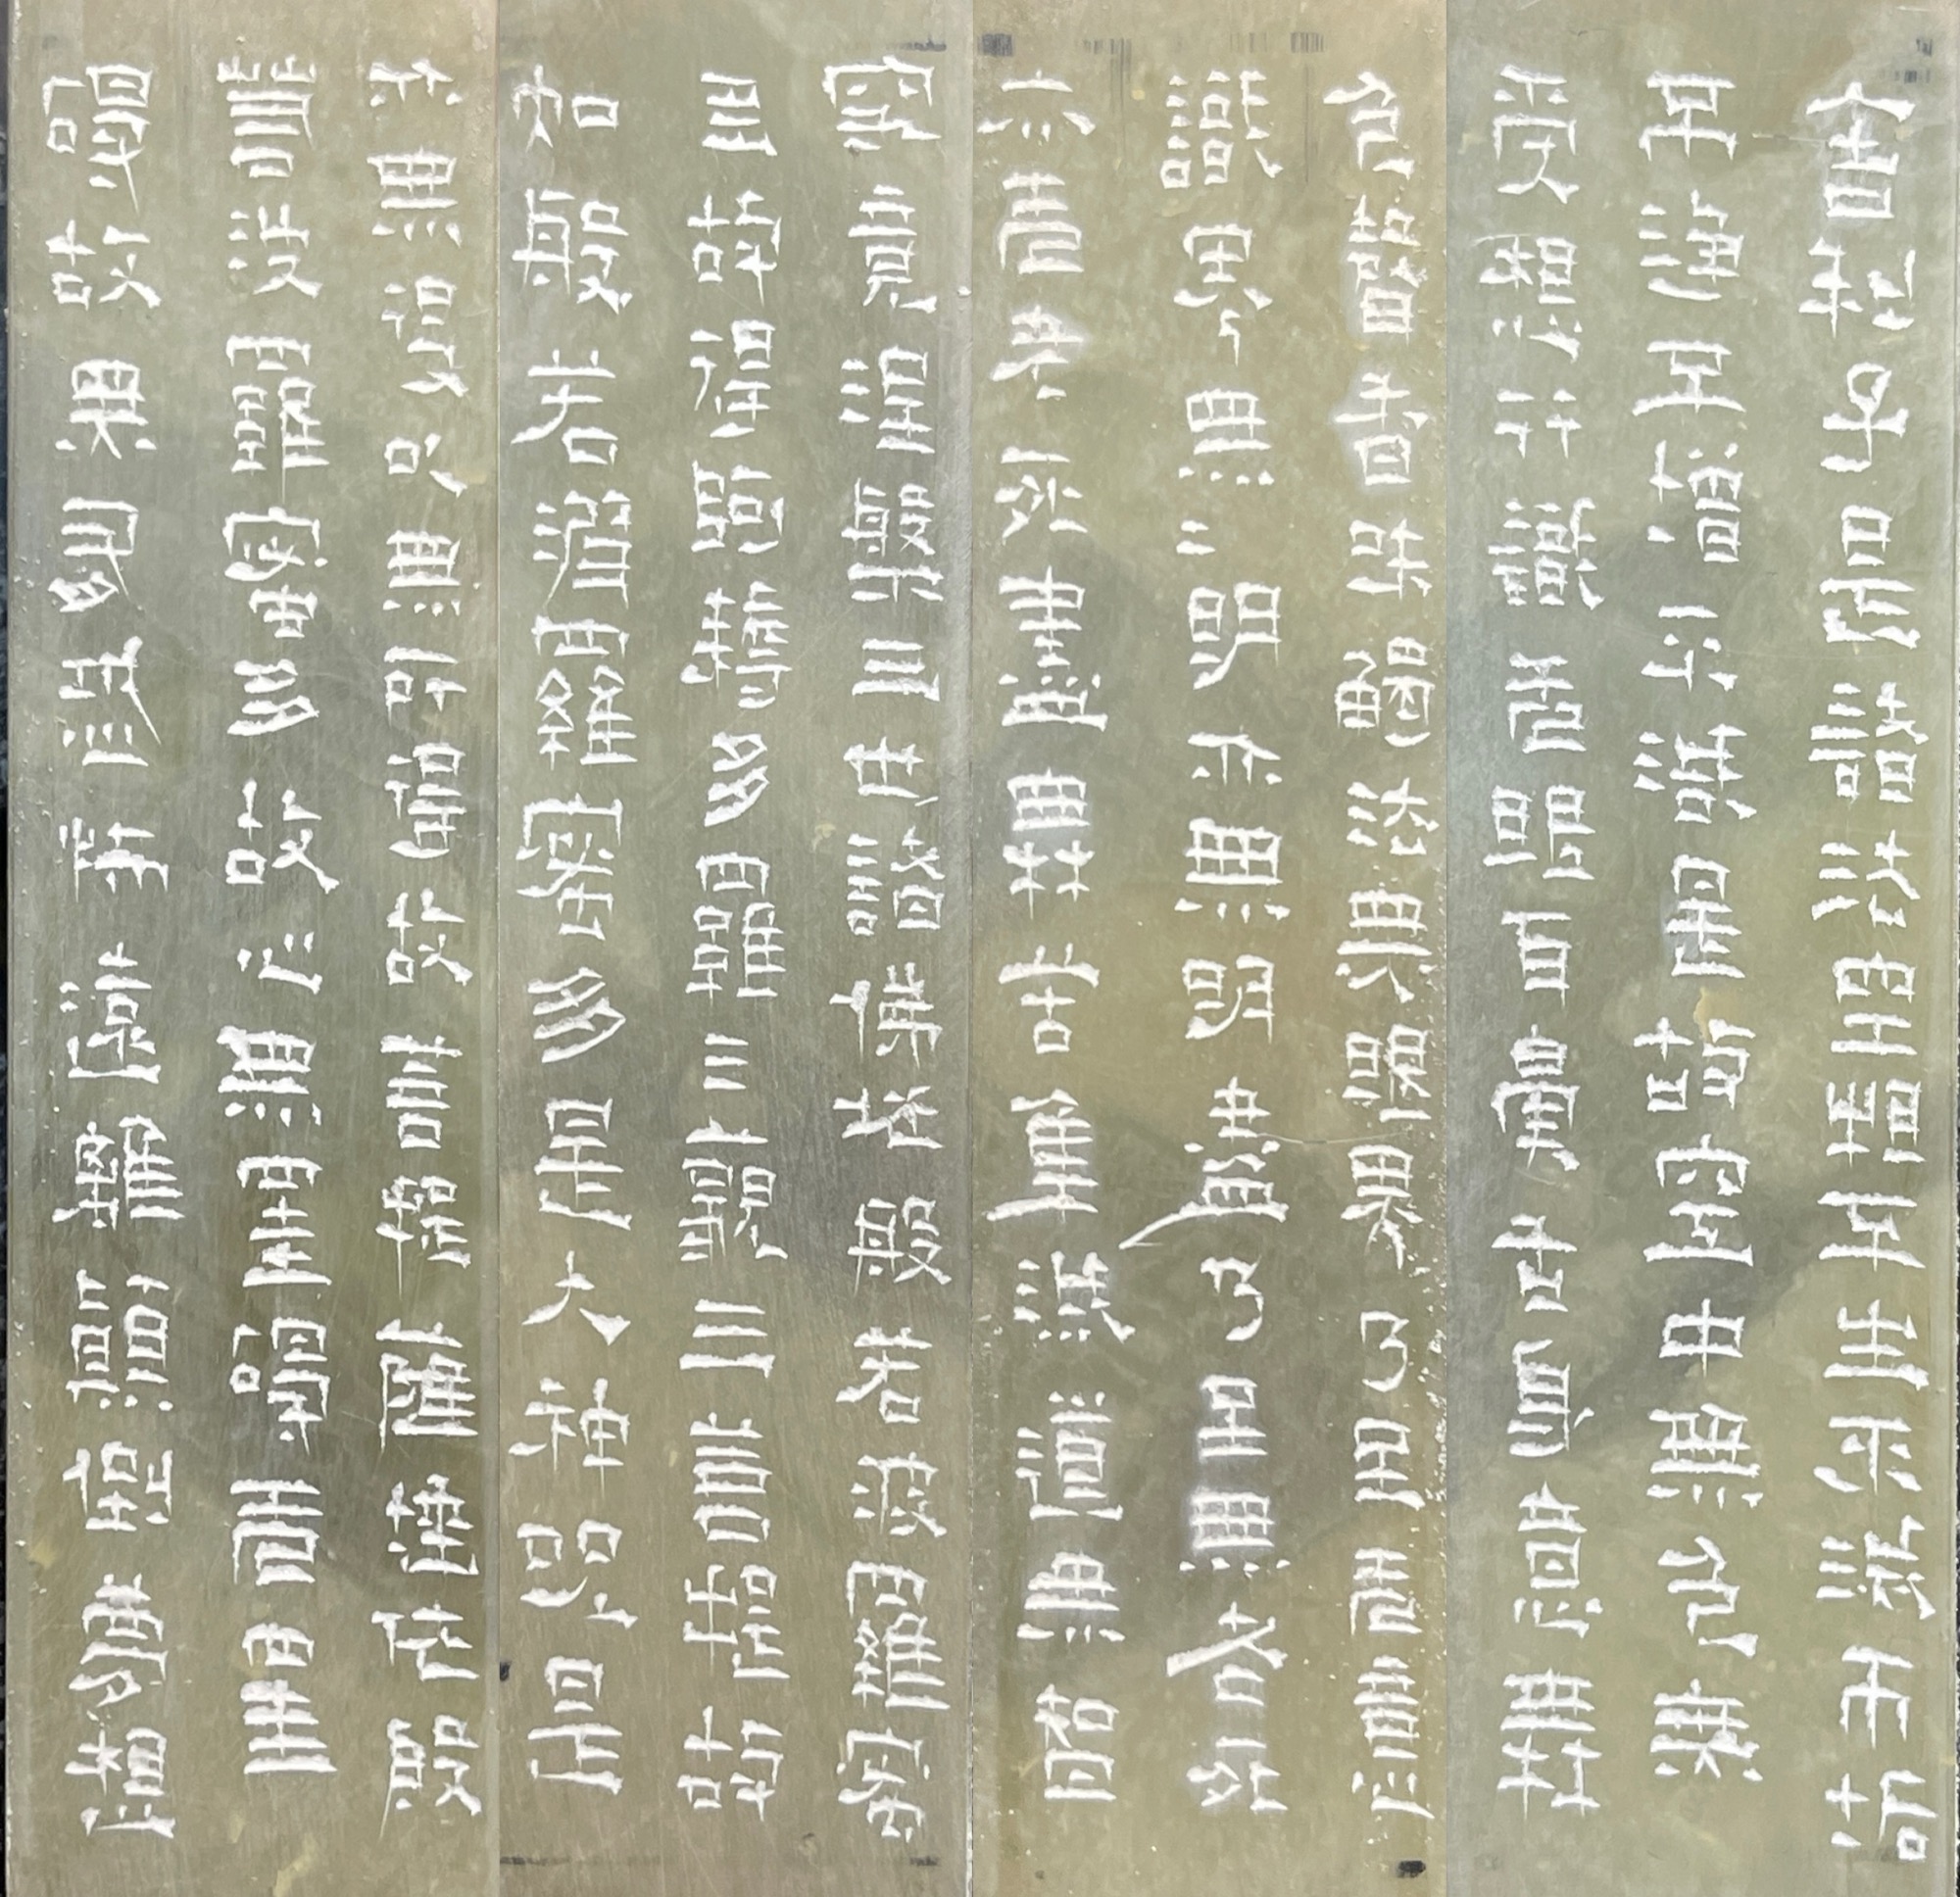 舍利子是諸法空相不生不滅不垢
不淨不增不減是故空中無色無
受想行識無眼耳鼻舌身意無
色聲香味觸法無眼界乃至無意
識界無二明亦無明盡乃至無老死
亦無老死盡無苦集滅道無智
究竟涅槃三世諸佛依般若波羅蜜
多故得阿耨多羅三藐三菩提故
知般若波羅蜜多是大神咒是
亦無得以無所得故菩提薩埵依般
若波羅蜜多故心無罣礙無罣
礙故無有恐怖遠離顛倒夢想